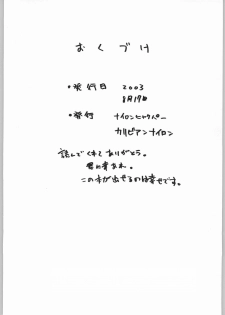 おくづけ
・発行日 2003
8月19日
・発行 ナイロンヒャクパー
カリビアンナイロン
読んでくれてありがとう。
君に幸あれ。
この本が出せるのは幸せです。